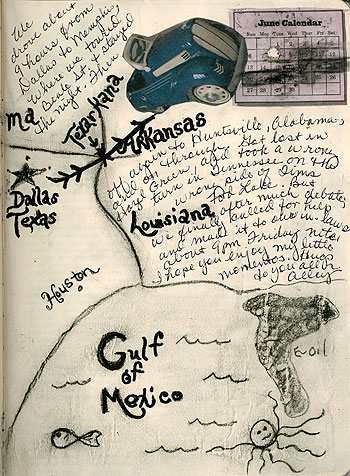 We
drove about
9 hours from
Dallas to Memphis,
where we toured
Beale St. + stayed
the night. Thur
June Calendar
Sun Mon Tue Wed Thur Fri Sat
ma
Texarkana
Arkansas
Dallas
Texas
Louisiana
Houston
Off again to Huntsville, Alabama
on through. Got lost in
Hazel Green, AL + took a wrong
turn in Tennessee on the
wrong side of Tims
Ford Lake. But
after much debate
we finally called for help
and made it to our in-laws
about 9pm Friday nite.
I hope you enjoy my little
momentos. Hugs
to you all
Gulf
of
Mexico
Oil